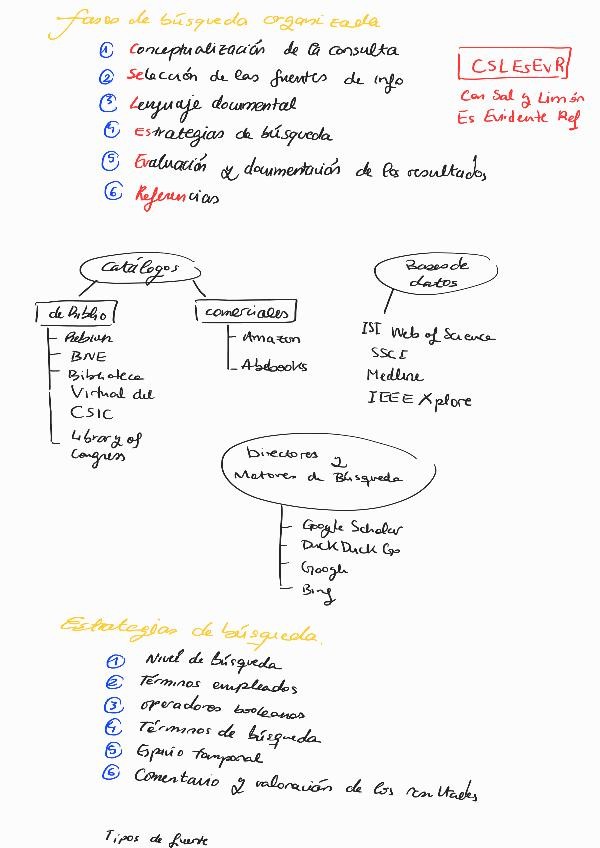 Fases de búsqueda organizada
1 Conceptualización de la consulta
2 Selección de las fuentes de info
3 Lenguaje documental
4 Estrategias de búsqueda
5 Evaluación y documentación de los resultados
6 Referencias
CSLEsEvR
Con Sal y Limón
Es Evidente Ref
Catálogos
de Biblio
Rebiun
BNE
Biblioteca
Virtual del
CSIC
Library of
Congress
comerciales
Amazon
Abebooks
Bases de
datos
ISI Web of Science
SSCI
Medline
IEEE Xplore
Directores y
Motores de Búsqueda
Google Scholar
Duck Duck Go
Google
Bing
Estrategias de búsqueda.
1 Nivel de búsqueda
2 Términos empleados
3 operadores booleanos
4 Términos de búsqueda
5 temporal
6 Comentario y valoración de los resultados
Tipos de fuente